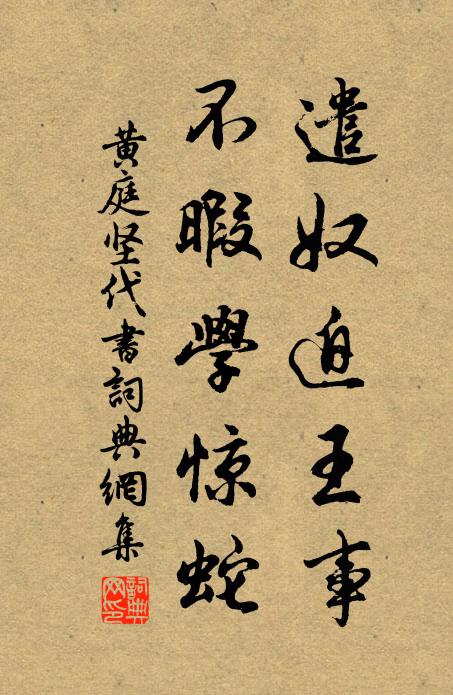 遣奴迫王事
不暇學惊蛇
黄庭坚代書詞典網集
詞典网印